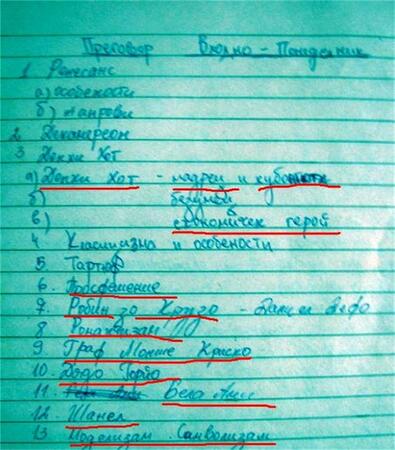 Преговор Входно - Понделник
1 Ренесанс
а) особености
б) жанрови
2 Декамерон
3 Донки Хот
а) Донки Хот - мадрец и
б) безумец
в) економичек герой
4 Класицизма и особености
5. Тартюф
6. Просфещение
7. Робин зо Крузо - Даниел Дефо
8 Романтизам
9 Граф Монте Криско
10. Дядо Горйо
11. Бела Ами
12. Шанел
13 Моделизам. Символизам